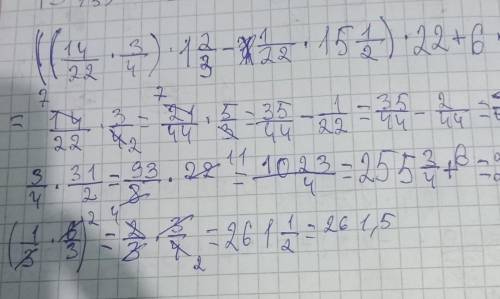 ((14/22 · 3/4) · 1 2/3 - 1/22 · 15 1/2) · 22 + 6 ·
= 14/22 · 3/4 2 = 21/44 · 5/3 = 35/44 - 1/22 = 35/44 - 2/44 =
3/4 · 31/2 = 93/8 · 22 11 = 1023/4 = 255 3/4 + 6 =
(1/3 · 6/3)² = 2/3 · 3/4 2 = 261 1/2 = 261,5